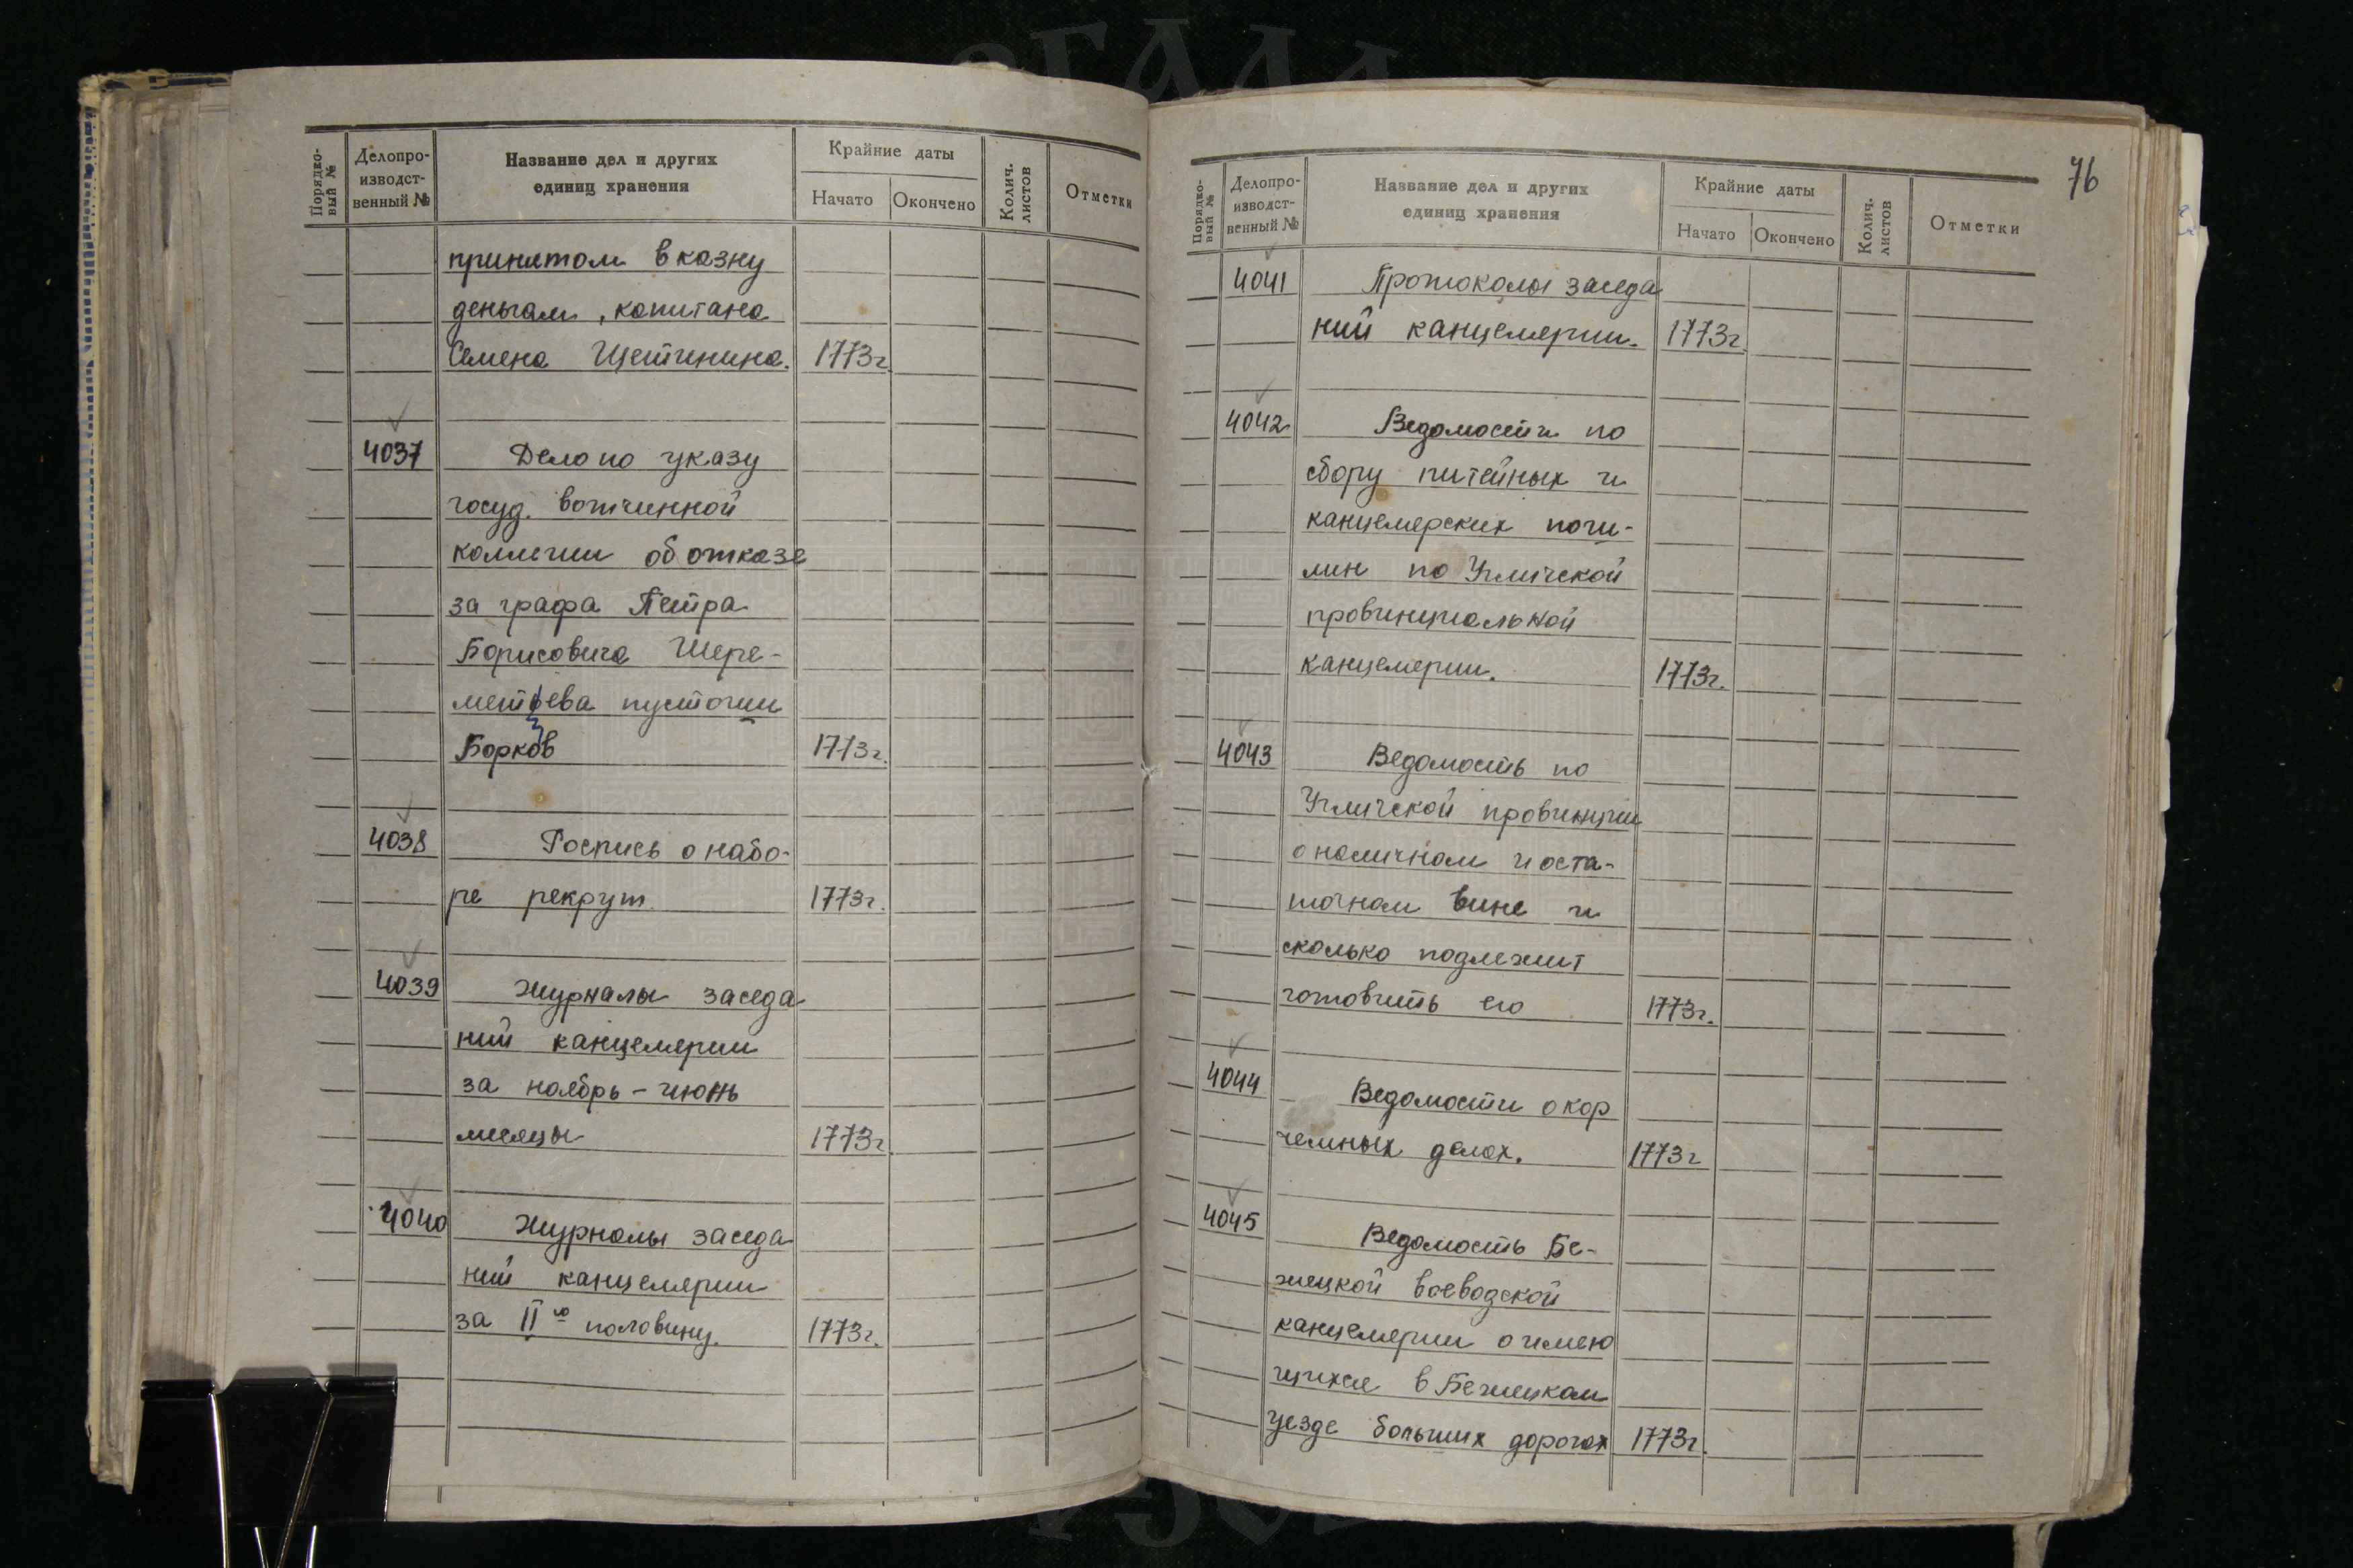 Порядко-
вый №
Делопро-
изводст-
венный №
Название дел и других
единиц хранения
Крайние даты
Начато
Окончено
Колич.
листов
Отметки
принятом в казну
деньгам, капитана
Семена Щетинина. 1773г.
4037 Дело по указу
госуд. вотчинной
коллегии об отказе
за графа Петра
Борисовича Шере-
метьева пустоши
Борков 1773г.
4038 Роспись о набо-
ре рекрут 1773г.
4039 Журналы заседа
ний канцелярии
за ноябрь – июнь
месяцы 1773г.
4040 Журналы заседа
ний канцелярии
за IIю половину. 1773г.
76
Порядко-
вый №
Делопро-
изводст-
венный №
Название дел и других
единиц хранения
Крайние даты
Начато
Окончено
Колич.
листов
Отметки
4041 Протоколы заседа
ний канцелярии. 1773г.
4042 Ведомости по
сбору питейных и
канцелярских пош-
лин по Угличской
провинциальной
канцелярии. 1773г.
4043 Ведомость по
Угличской провинции
о наличном и оста-
точном вине и
сколько подлежит
готовить его 1773г.
4044 Ведомости о кор
чемных делах. 1773г
4045 Ведомость Бе-
жецкой воеводской
канцелярии о имею
щихся в Бежецком
уезде больших дорогах 1773г.